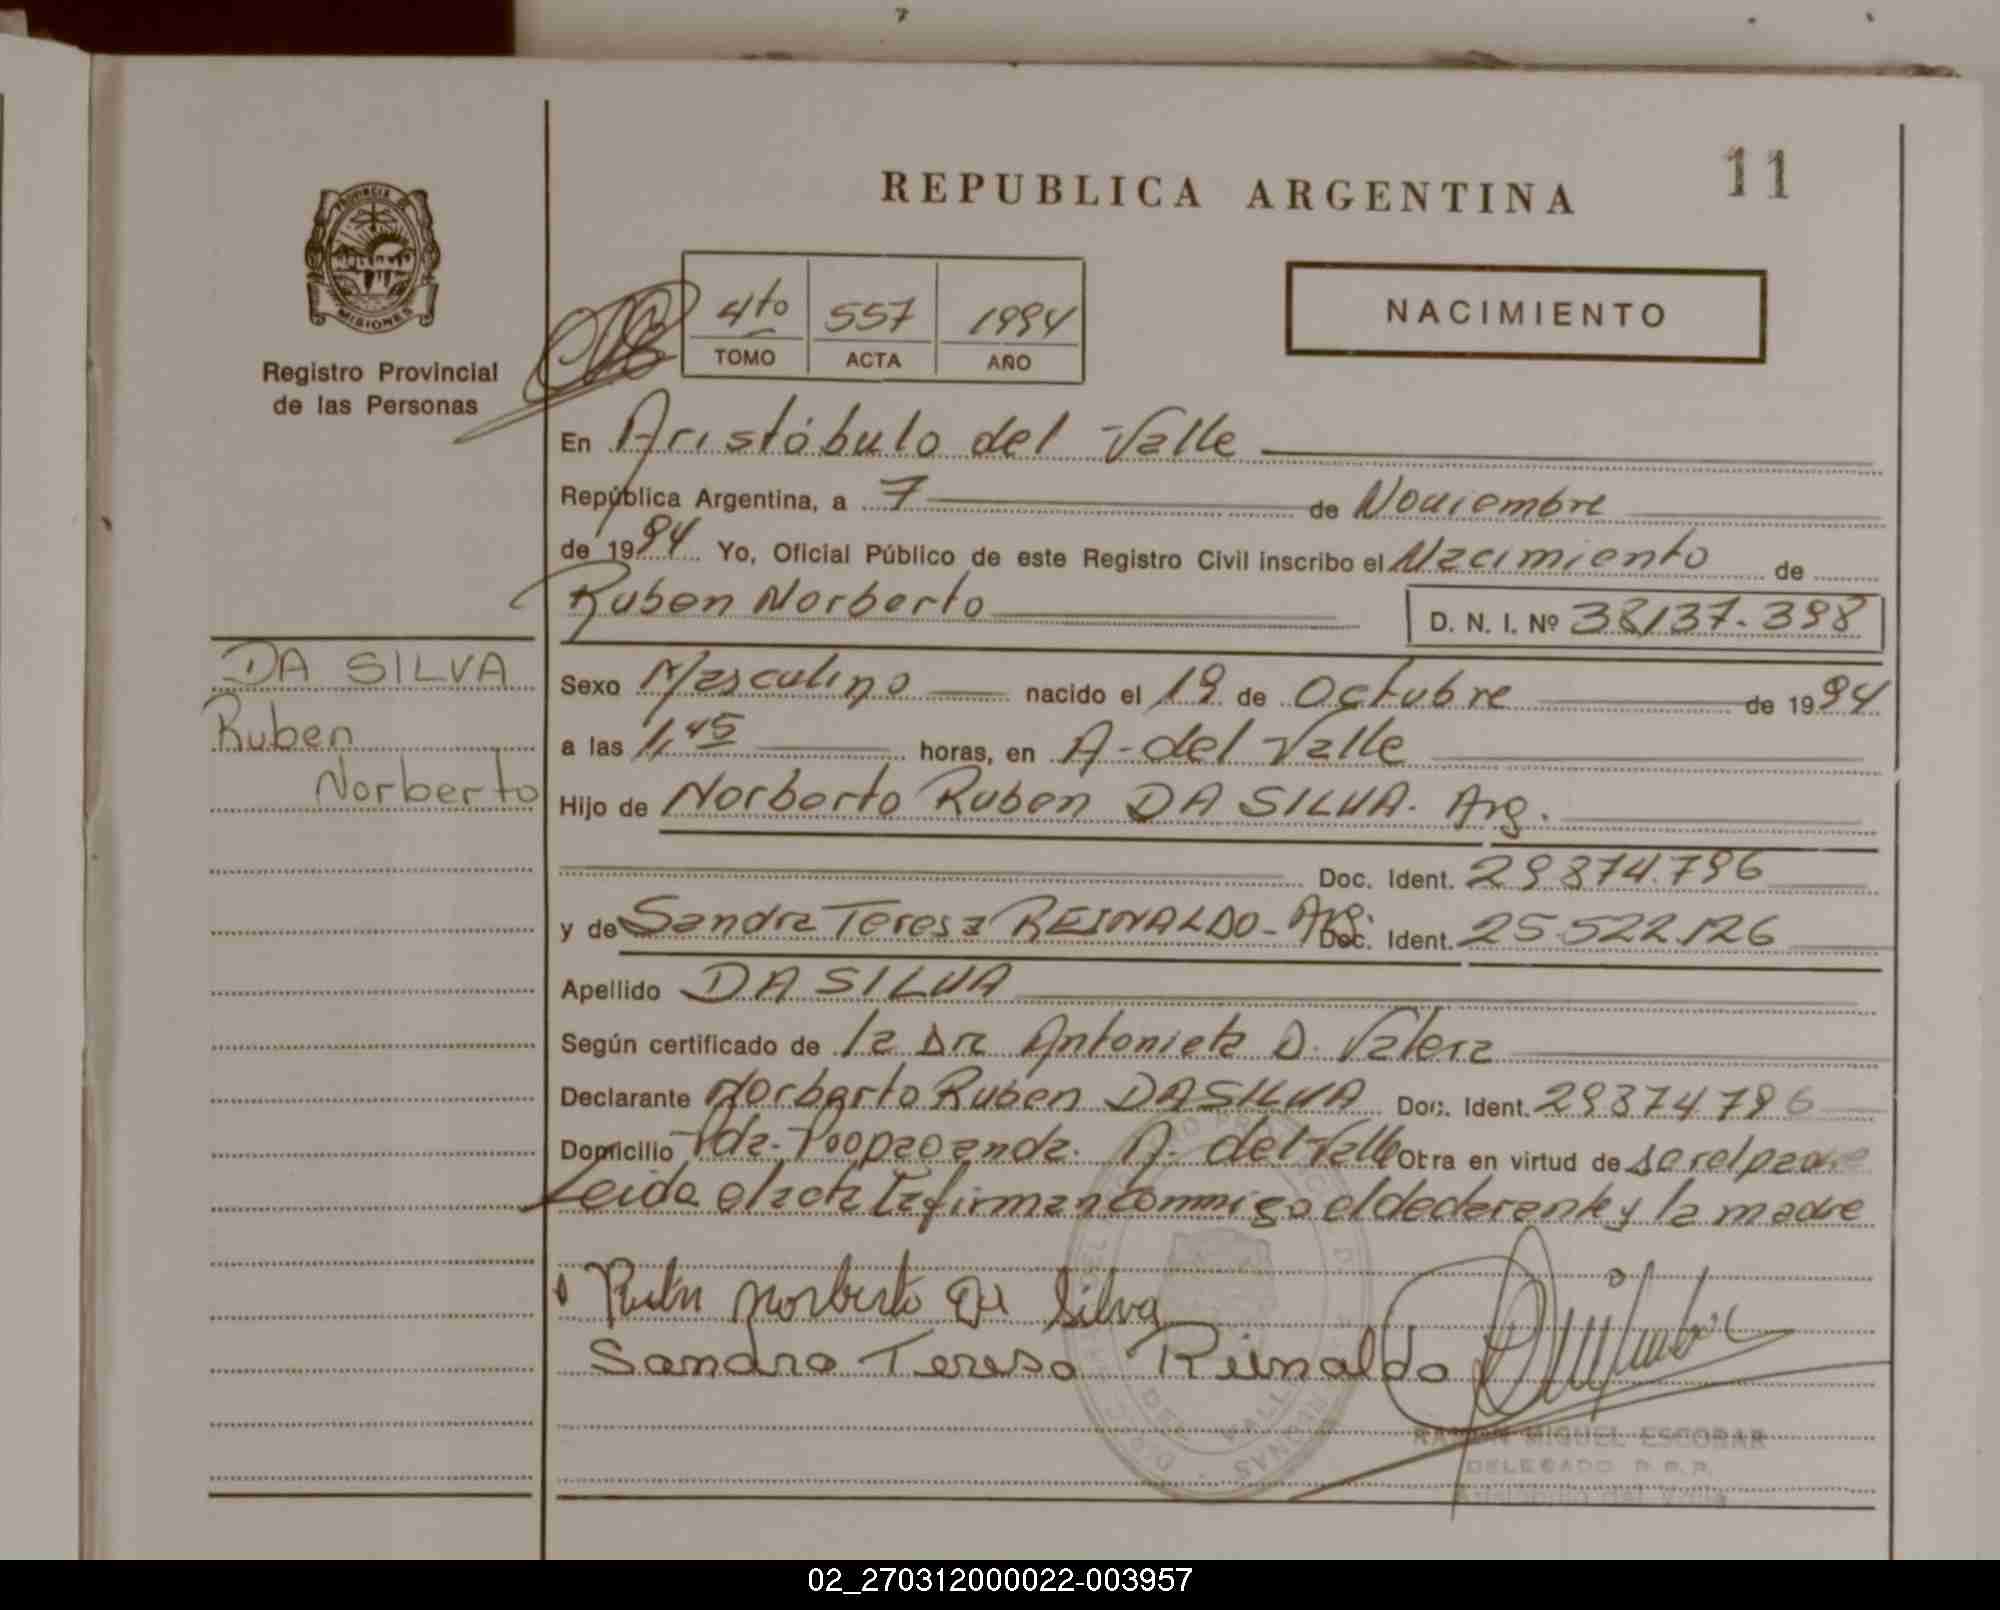 11
REPUBLICA ARGENTINA
PROVINCIA DE
MISIONES
Registro Provincial
de las Personas
4to 557 1994
TOMO ACTA AÑO
NACIMIENTO
En Aristóbulo del Valle
República Argentina, a 7 de Noviembre
de 1994 Yo, Oficial Público de este Registro Civil inscribo el Nacimiento de
Ruben Norberto D. N. I. Nº 38137.398
DA SILVA
Ruben
Norberto
Sexo Masculino nacido el 19 de Octubre de 1994
a las 1,45 horas, en A. del Valle
Hijo de Norberto Ruben DA SILVA. Arg.
Doc. Ident. 29874.796
y de Sandra Teresa REINALDO - Arg. Doc. Ident. 25.522.126
Apellido DA SILVA
Según certificado de la Dra Antonieta D. Valera
Declarante Norberto Ruben DA SILVA Doc. Ident. 29874796
Domicilio Pda. A. del Valle Obra en virtud de ser el padre
Leida el acta la firman conmigo el declarante y la madre
Rubén Norberto Da Silva
Sandra Teresa Reinaldo
RAMON MIGUEL ESCOBAR
DELEGADO R.P.P.
Aristóbulo del Valle
02_270312000022-003957